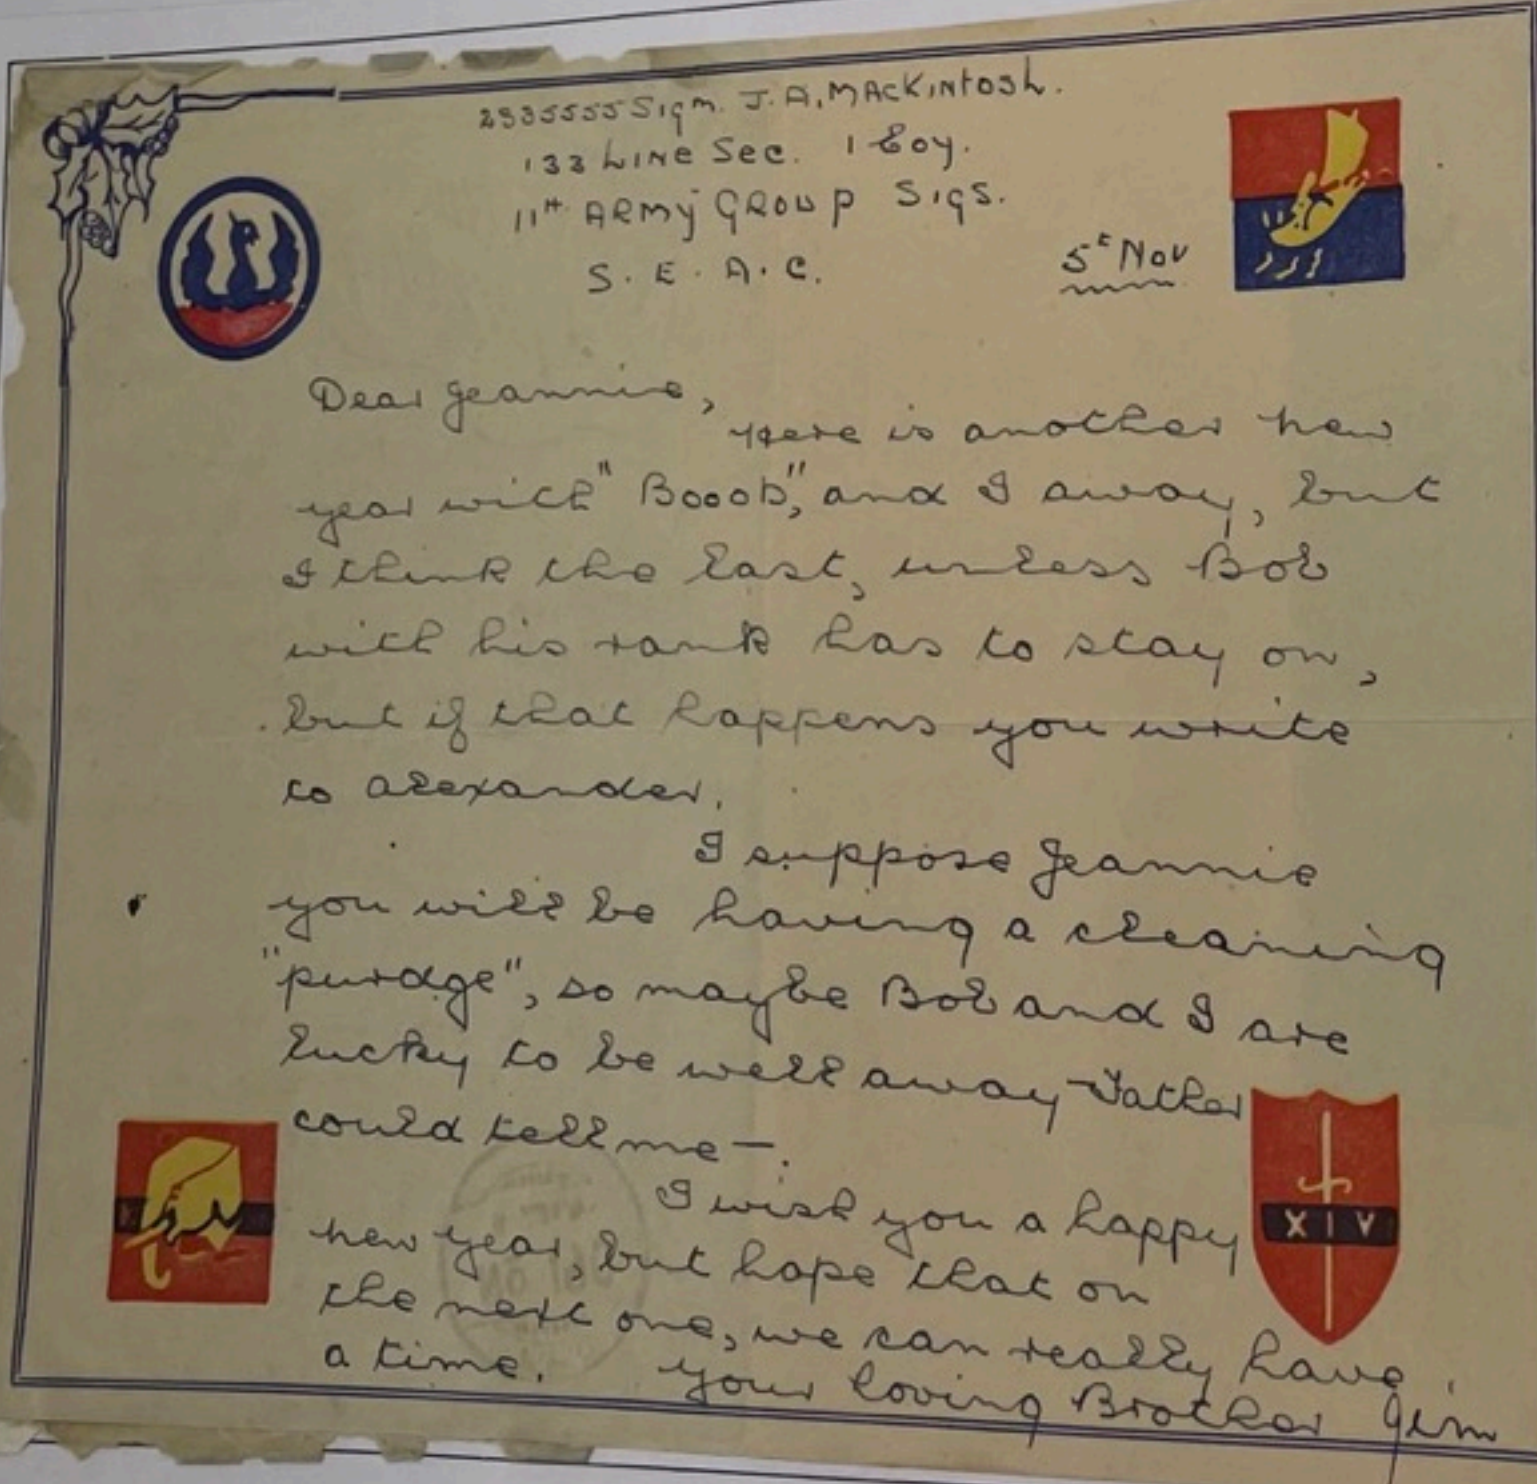 2935555 Sigm. J. A. MACKINTOSH.
133 LINE Sec. 1 Coy.
11th ARMY GROUP SIGS.
S. E. A. C.
5th Nov
Dear Jeannie,
Here is another new
year with "Booob", and I away, but
I think the last, unless Bob
with his rank has to stay on,
but if that happens you write
to Alexander.
I suppose Jeannie
you will be having a cleaning
"purdge", so maybe Bob and I are
lucky to be well away – Father
could tell me —.
I wish you a happy
new year, but hope that on
the next one, we can really have
a time.
Your loving Brother Jim
XIV